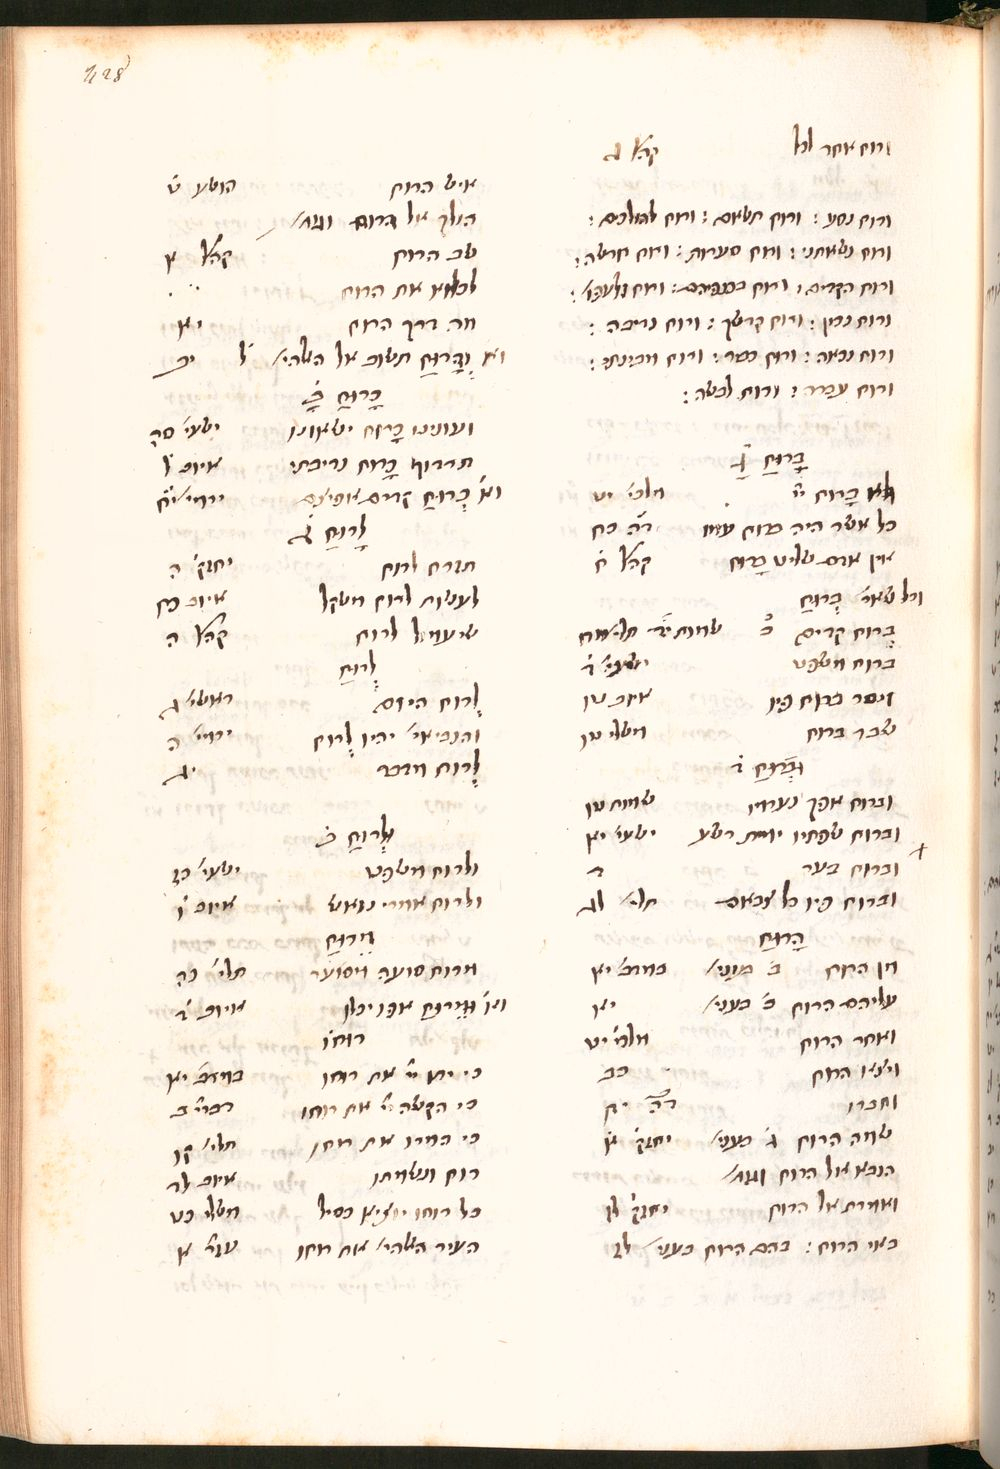 428
ורוח אחד לכל קהל׳ ג
ורוח נסע : ורוח תשאם : ורוח להולכים :
ורוח נשאתני : ורוח סערות : ורוח חרישה :
ורוח הקדים : ורוח בכנפיהם : ורוח זלעפו׳ :
ורוח נכון : ורוח קדשך : ורוח נדיבה :
ורוח נכאה : ורוח נשברה : ורוח מבינתי :
ורוח עברה : ורוח לבשה :
בָּרוּחַ ג֗
לא בָרוח יי מלכי׳ יט
כל אשר היה ברוח עמו דה כח
אין אדם שליט בָרוח קהל׳ ח
וכל שאר׳ בְּרוּחַ
ברוח קדים ב שמות תלי׳ מח
ברוח משפט ישעי׳ ד
ויסר ברוח פיו איוב טו
שבר ברוח משלי טו
וּבְרוּחַ ד
וברוח אפך נערמו שמות טו
וברוח שפתיו ימית רשע ישעי׳ יא
וברוח בער ד
וברוח פיו כל צבאם תלי׳ לג
הָרוּחַ
מן הרוח ב׳ במדב׳ יא
עליהם הרוח ב׳ בעני׳ יא
ואחר הרוח מלכי׳ יט
ויצא הרוח כב
וחברו דה יח
שמה הרוח ג׳ בעני׳ יחזק׳ א
הנבא אל הרוח
ואמרת אל הרוח יחזק׳ לז
באי הרוח : בהם הרוח בעני׳ לז
איש הרוח הושע ט
הולך אל דרום
סבב הרוח קהל׳ א
לכלוא את הרוח
מה דרך הרוח יא
וא֗ וְהָרוּחַ תשוב אל האלהי׳ יב
כָּרוּחַ ב֗
ועונינו כָרוח ישאונו ישעי׳ סד
תרדוף כָרוח נדיבתי איוב ל
וא֗ כְּרוּחַ קדים אפיצם ירמי׳ יח
לָרוּחַ ג֗
תזרה לרוח יחזק׳ ה
לעשות לרוח משקל איוב כח
שיעמול לרוח קהל׳ ה
לְרוּחַ
לרוח היום ראשי׳ ג
והנביאי׳ יהיו לרוח ירמי׳ ה
לרוח מדבר יג
וּלְרוּחַ ב֗
ולרוח משפט ישעי׳ כח
ולרוח אמרי נואש איוב ו
מֵרוּחַ
מרוח סועה מסער תלי׳ נה
וא֗ וּמֵרוּחַ אפו יכלו איוב ד
רוּחוֹ
כי יתן יי את רוחו במדב׳ יא
כי הקשה יי את רוחו דברי׳ ב
כי המרו את רוחו תלי׳ קו
רוחו ונשמתו איוב לד
כל רוחו יוציא כסיל משלי כט
העיר האלהי׳ את רוחו עזר׳ א